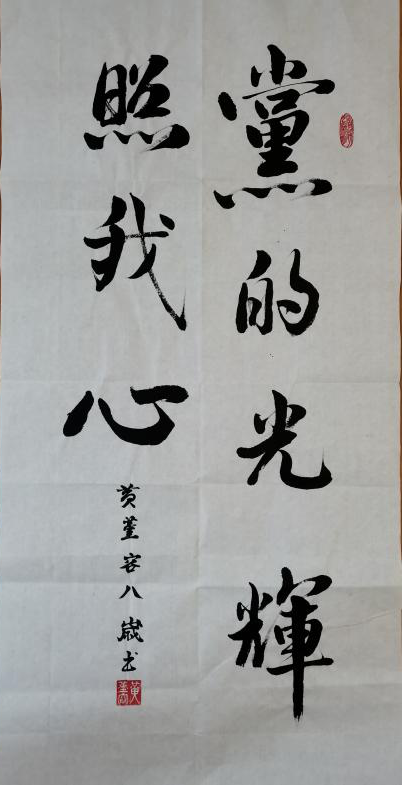 黨的光輝
照我心
黄堇容八歲书